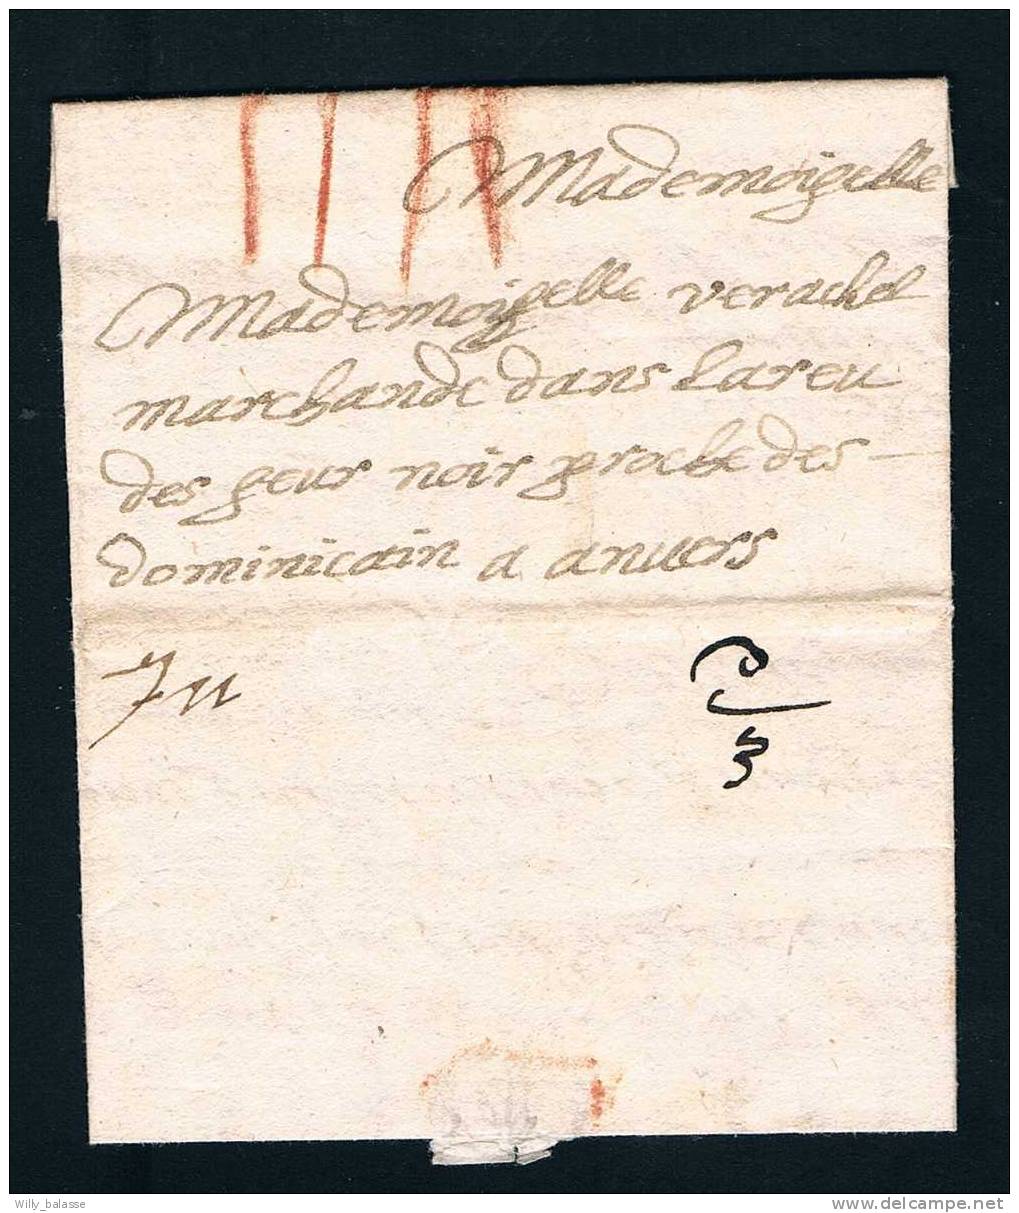 Mademoigelle
Mademoigelle verachel
marchande dans lareu
des geur noir proche des
dominicain a anvers
Willy_balasse
delcampe.net